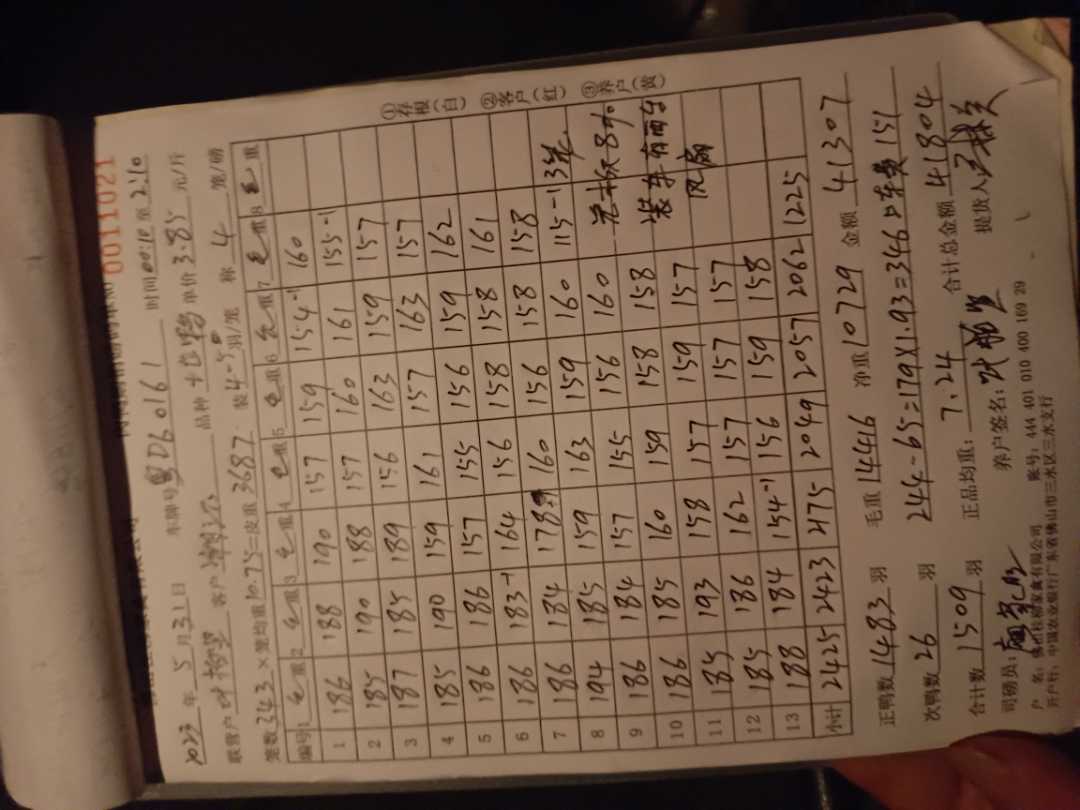 0011021
2023年5月31日 车牌号粤D60161 时间00:10至2:10
联营户 客户 品种 单价3.85元/斤
笼数343×笼均重10.75=皮重3687. 装4-5羽/笼 称4笼/磅
编号 1毛重 2毛重 3毛重 4毛重 5毛重 6毛重 7毛重 8毛重
1 186 188 190 157 159 154-1 160
2 185 190 188 157 160 161 155-1
3 187 185 189 156 163 159 157
4 185 190 159 161 157 163 157
5 186 186 157 155 156 159 162
6 186 183-1 164 156 158 158 161
7 186 184 178 160 156 158 158
8 194 185 159 163 159 160 115-1 3笼
9 186 184 157 155 156 160
10 186 185 160 159 158 158 装车有雨
11 185 193 158 157 159 157 风扇
12 185 186 162 157 157 157
13 188 184 154-1 156 159 158
小计 2425 2423 2175 2049 2057 2062 1225
①存根(白) ②客户(红) ③养户(黄)
正鸭数1483羽 毛重14416 净重10729 金额41307
次鸭数26羽 244-65=179×1.93=346 车费151
合计数1509羽 正品均重:7.24 合计总金额41804
司磅员: 养户签名: 提货人
户 名:佛 家禽有限公司 账号:444 401 010 400 169 29
开户行:中国农业银行广东省佛山市三水区三水支行